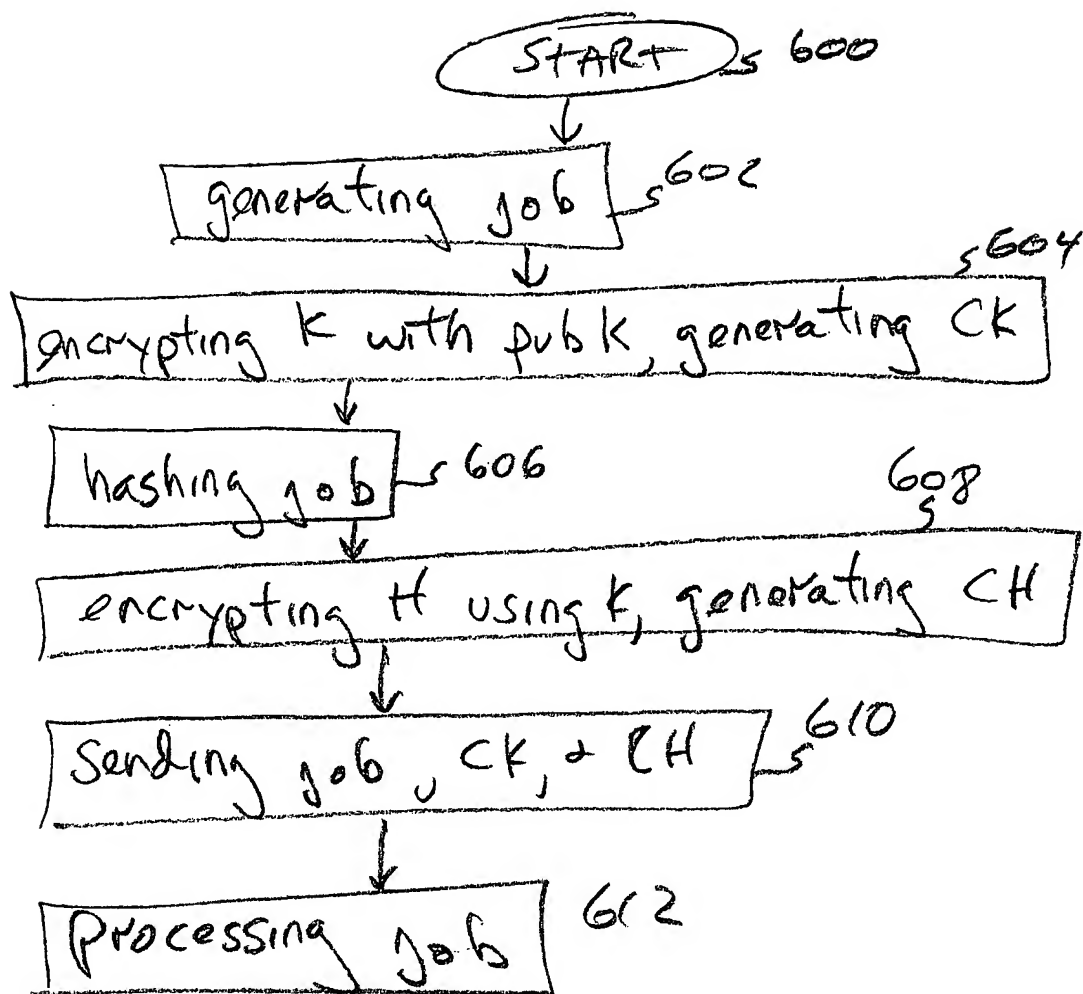 START 600
generating job 602
604
encrypting K with pubk, generating CK
hashing job 606
608
encrypting H using k, generating CH
sending job, CK, & CH 610
Processing job 612